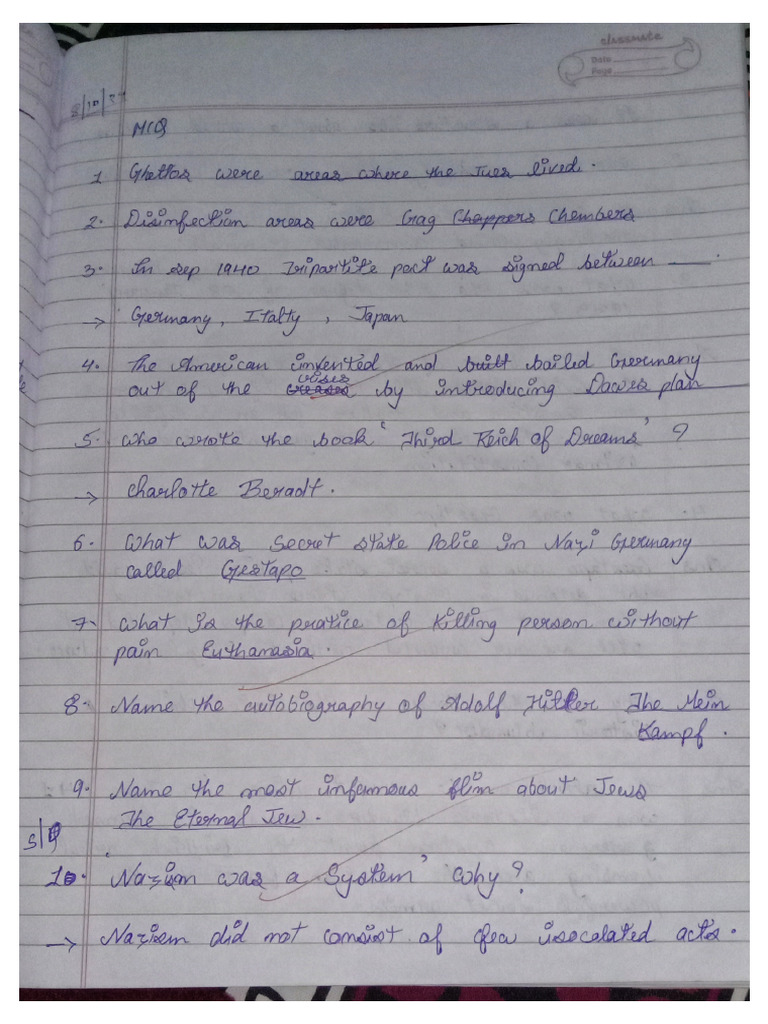 classmate
Date
Page
MCQ
1 Ghettos were areas where the Jues lived.
2. Disinfection areas were Gag Chappers Chembers
3. In sep 1940 Triparitite pect was signed between ___.
→ Germany, Italty, Japan
4. The American invented and built bailed Germany
crisis
out of the creases by introducing Dawes plan
5. who wrote the book 'Third Reich of Dreams' ?
→ charlotte Beradt.
6. what was secret state Police in Nazi Germany
called Gestapo
7. what is the pratice of killing person without
pain Euthanasia.
8. Name the autobiography of Adolf Hitler The Mein
Kampf.
9. Name the most infamous flim about Jews
The Eternal Jew.
S/Q
10. Nazism was a System' why?
→ Nazism did not consist of few isocalated acts.